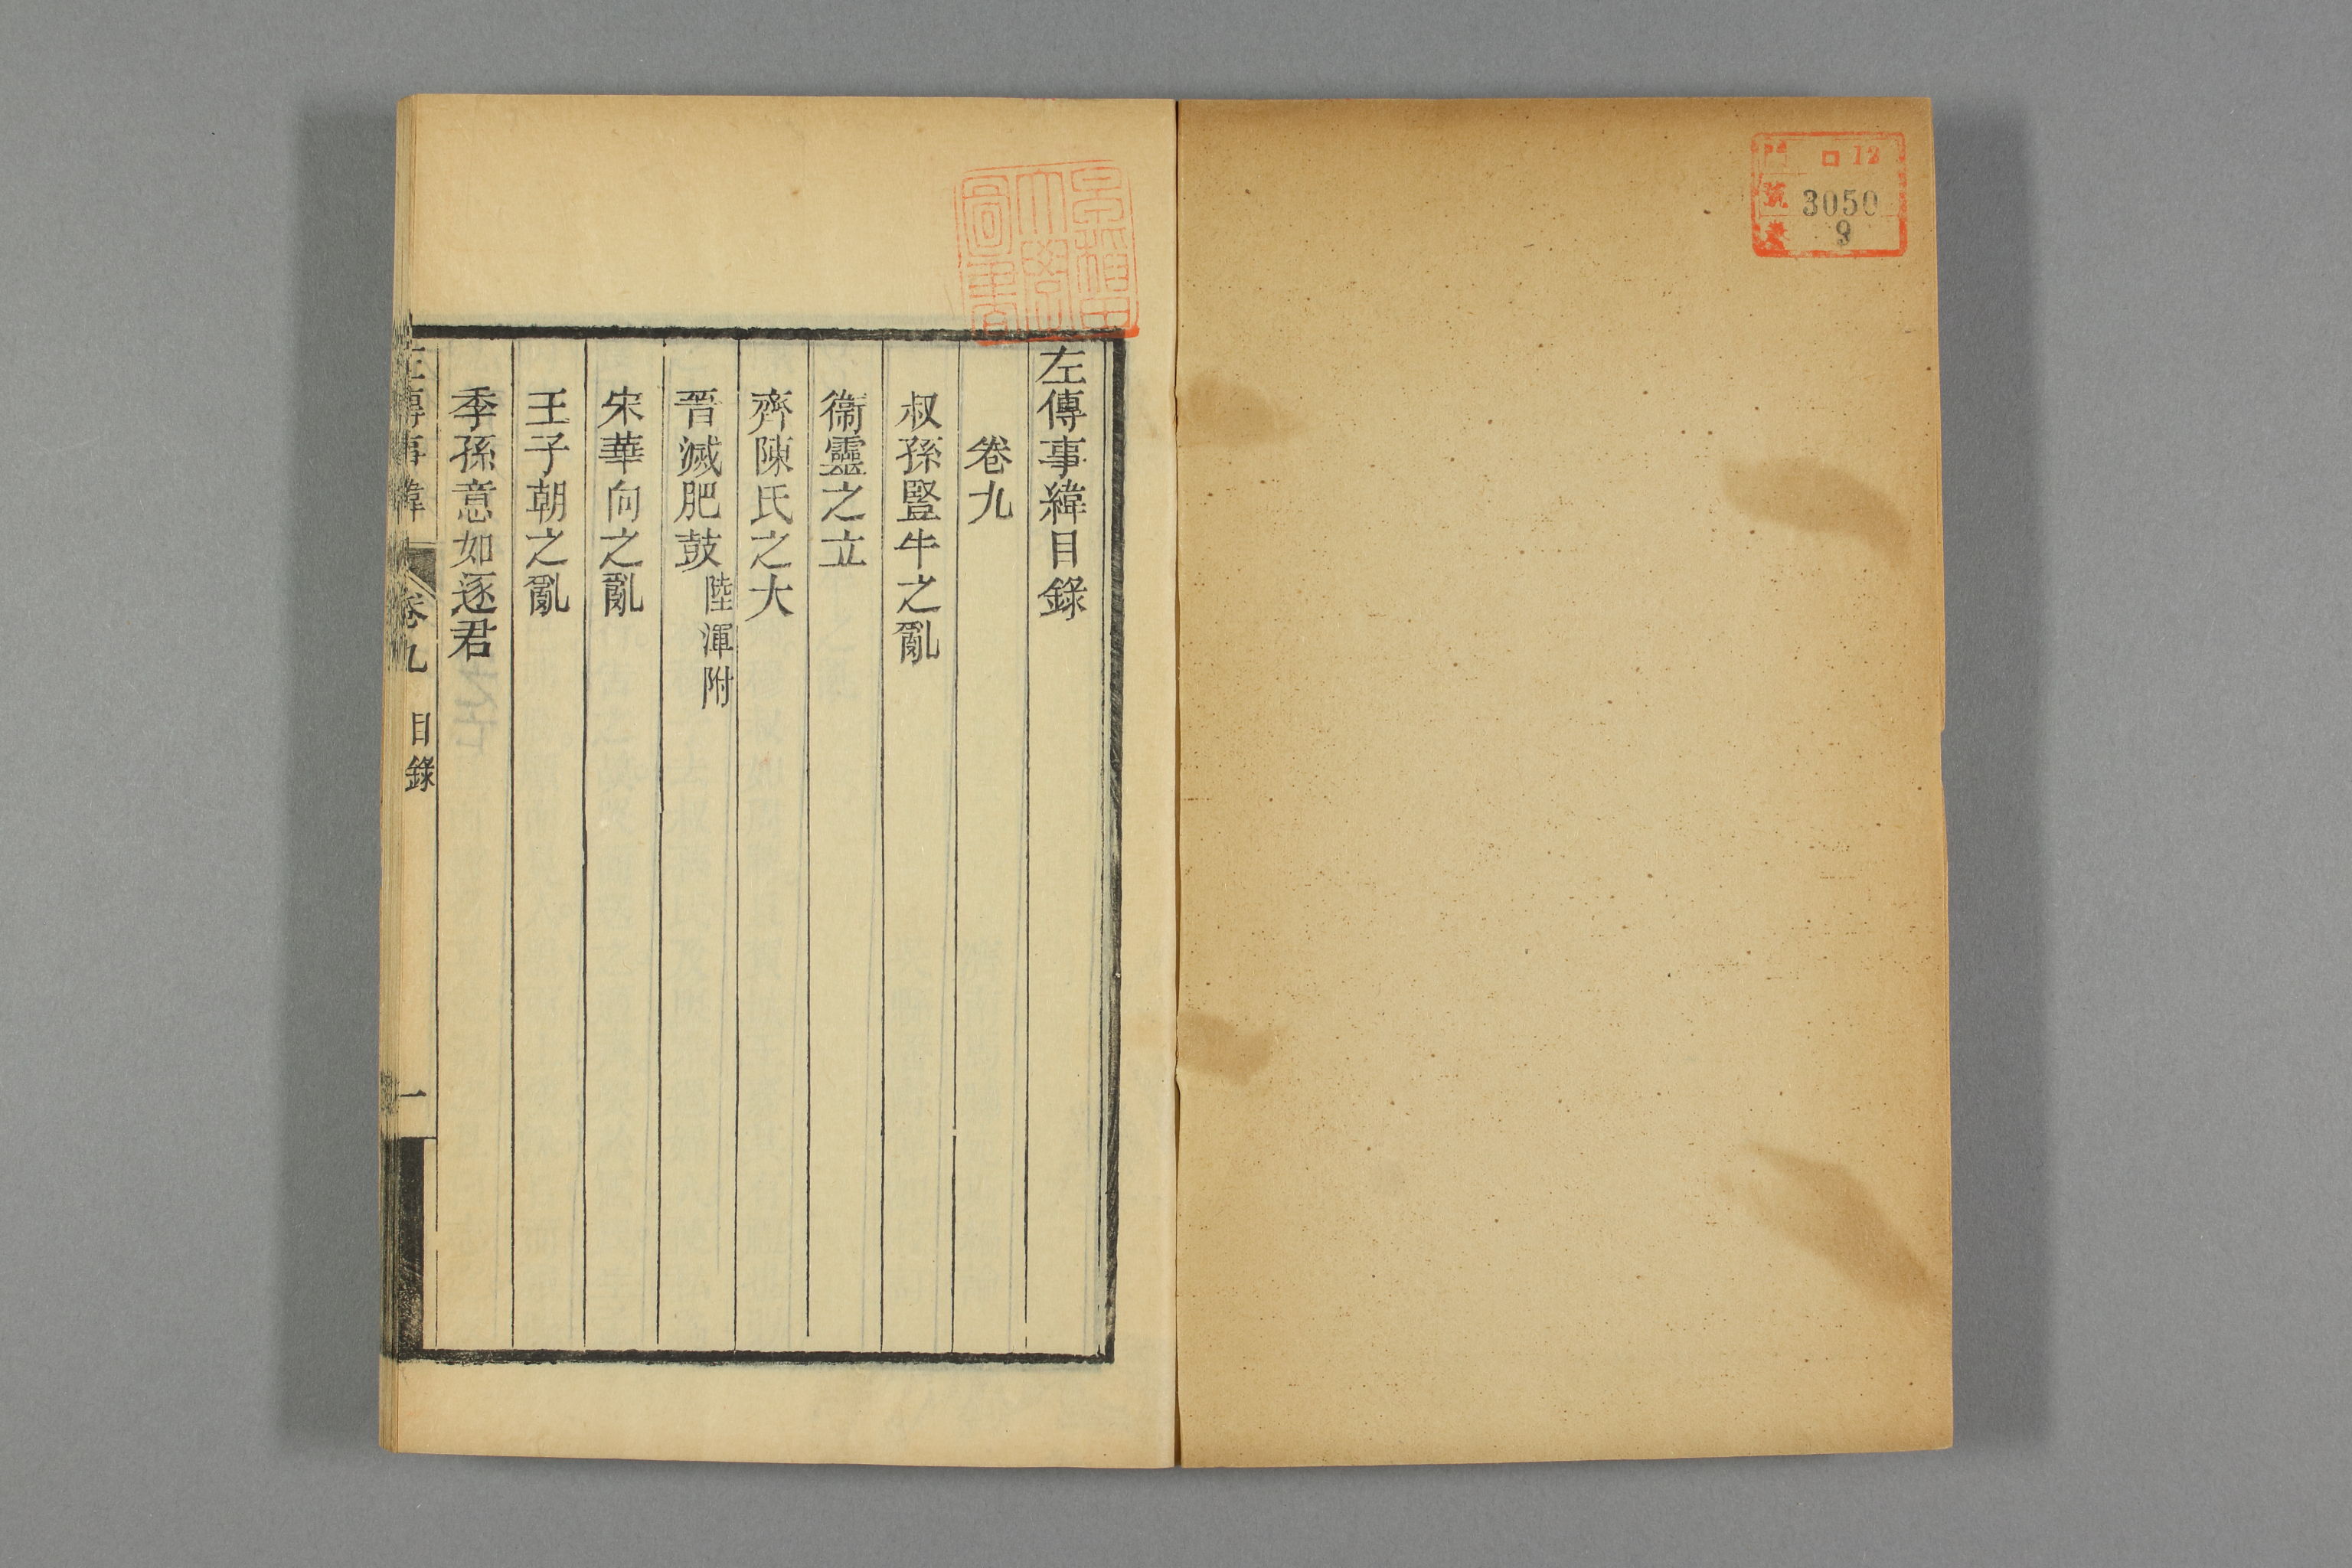 門 ロ12
號 3050
卷 9
早稲田
大學
圖書
左傳事緯目錄
卷九
叔孫豎牛之亂
衞靈之立
齊陳氏之大
晉滅肥鼓 陸渾附
宋華向之亂
王子朝之亂
季孫意如逐君
左傳事緯 卷九 目錄 一